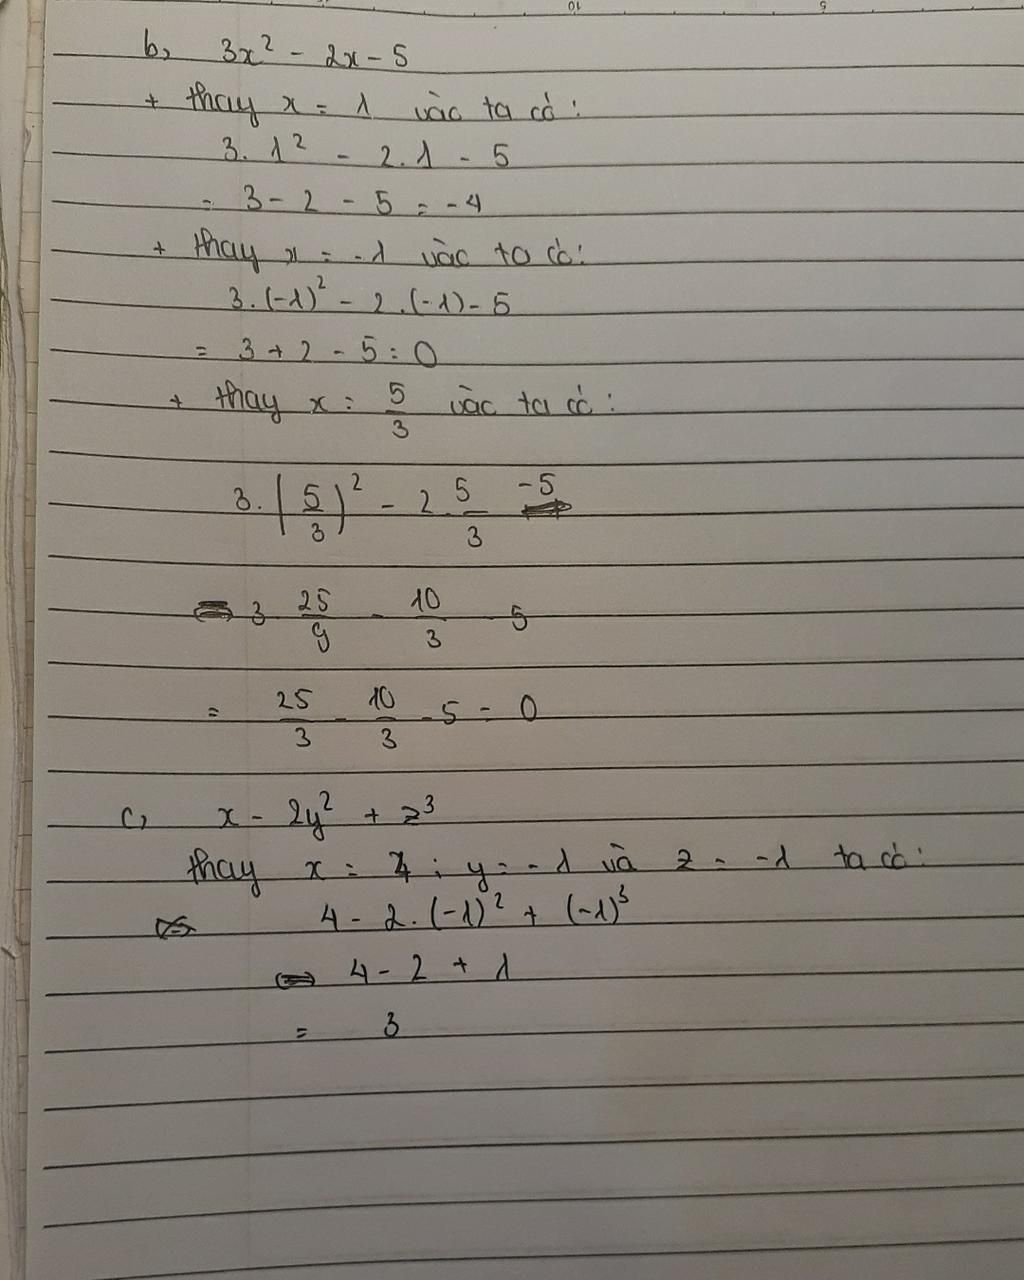 b, 3x² - 2x - 5
+ thay x = 1 vào ta có:
3. 1² - 2.1 - 5
= 3 - 2 - 5 = -4
+ thay x = -1 vào ta có:
3.(-1)² - 2.(-1) - 5
= 3 + 2 - 5 = 0
+ thay x = 5/3 vào ta có:
3. (5/3)² - 2. 5/3 -5
3 25/9 - 10/3 - 5
= 25/3 - 10/3 - 5 = 0
c, x - 2y² + z³
thay x = 4 ; y = -1 và z = -1 ta có:
4 - 2.(-1)² + (-1)³
4 - 2 + 1
= 3